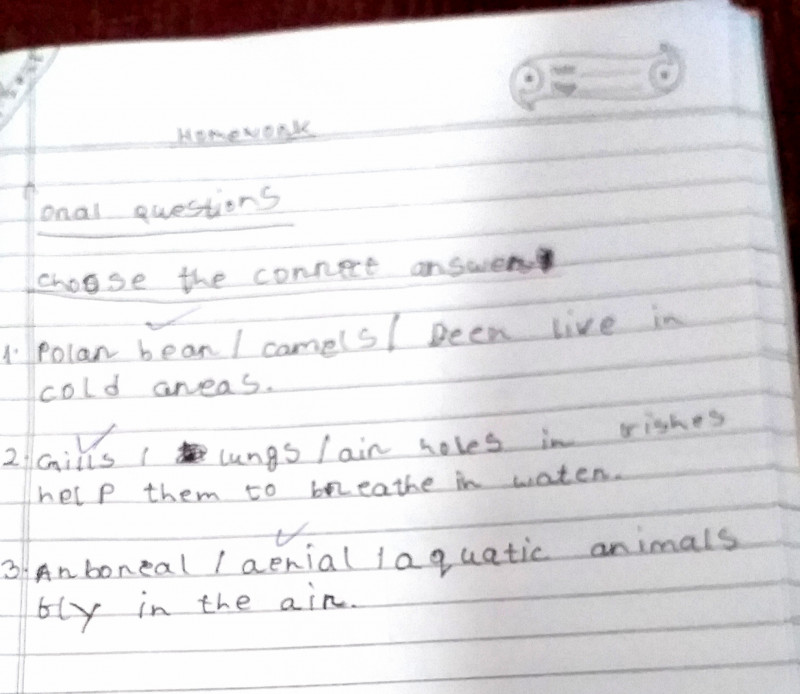 Homework
onal questions
choose the correct answer
1. Polar bear / camels / Deer live in
cold areas.
2. Gills / lungs / air holes in fishes
help them to breathe in water.
3. Arboreal / aerial / aquatic animals
fly in the air.